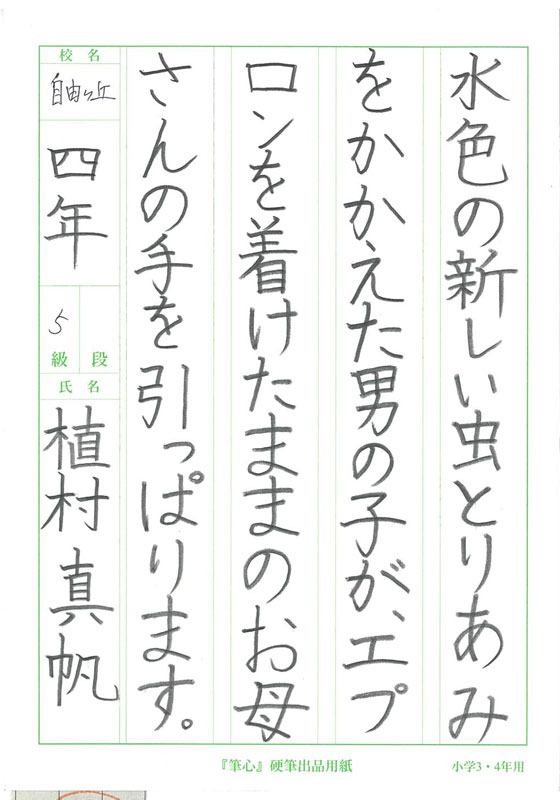 水色の新しい虫とりあみ
をかかえた男の子が、エプ
ロンを着けたままのお母
さんの手を引っぱります。
校名
自由ヶ丘
四年
5
級段
氏名
植村真帆
『筆心』硬筆出品用紙
小学3・4年用